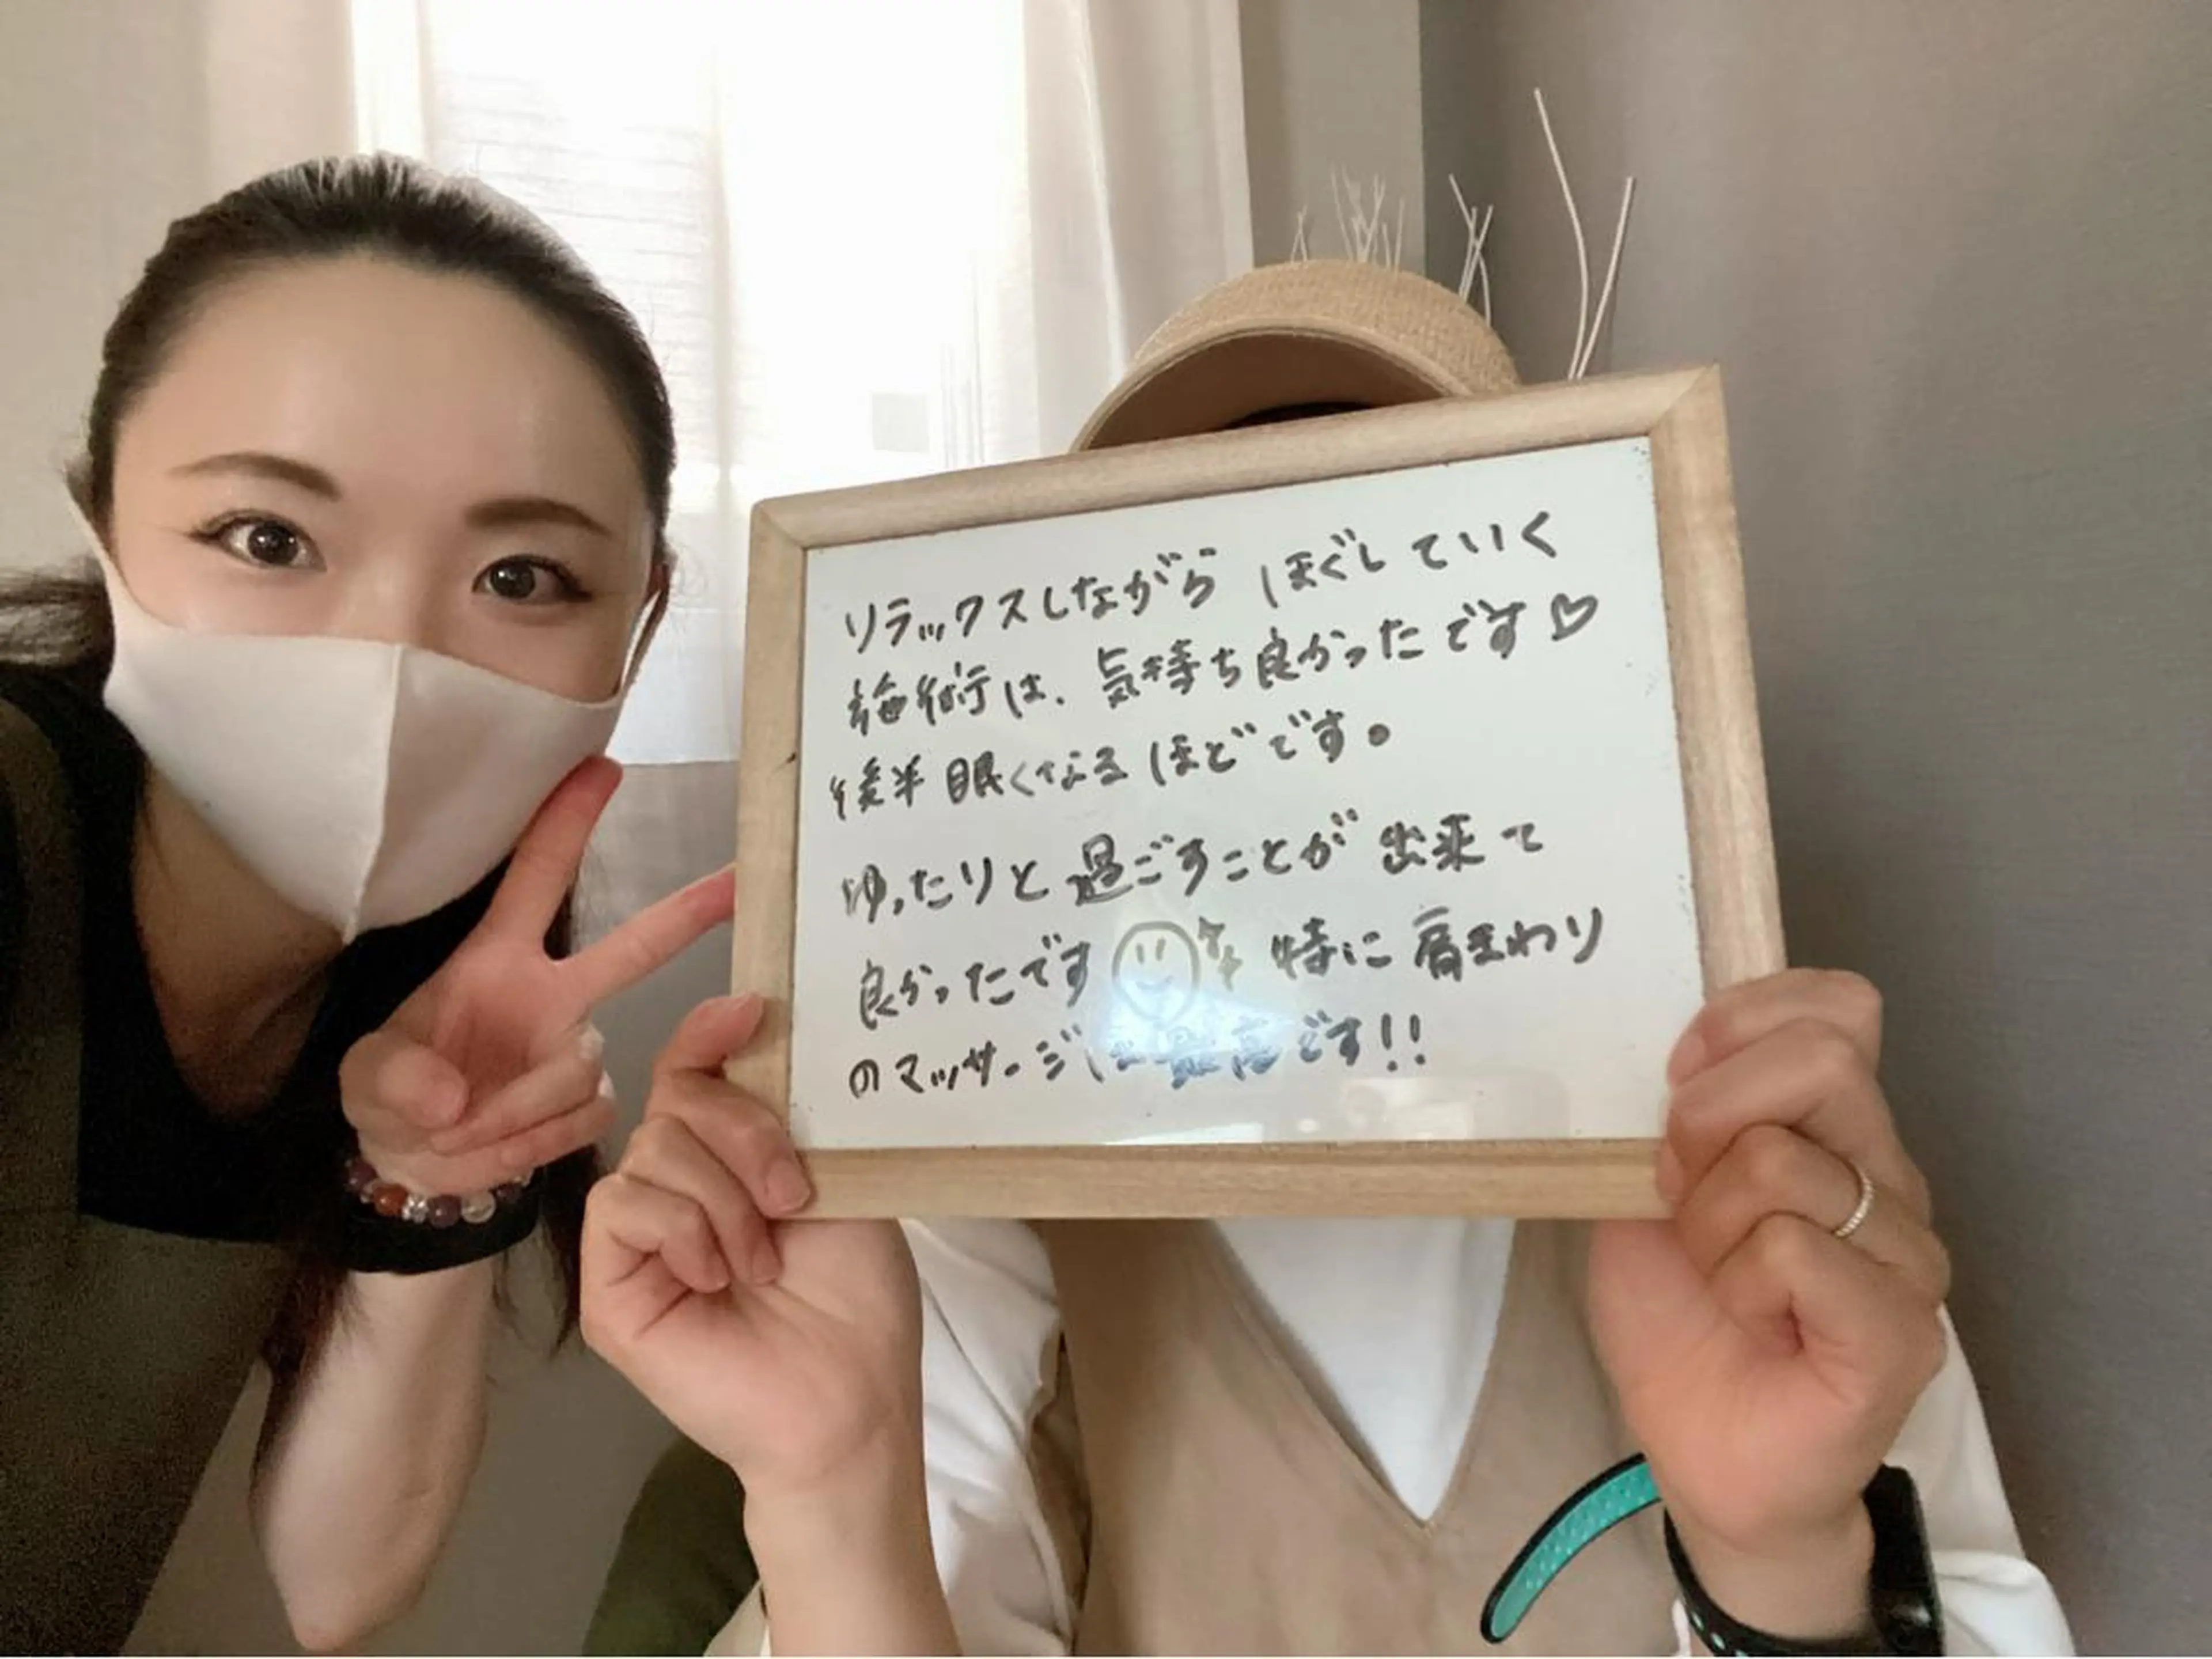 リラックスしながら ほぐしていく
施術は、気持ち良かったです♡
後半 眠くなるほどです。
ゆったりと過ごすことが 出来て
良かったです 特に 肩まわり
のマッサージは最高です!!